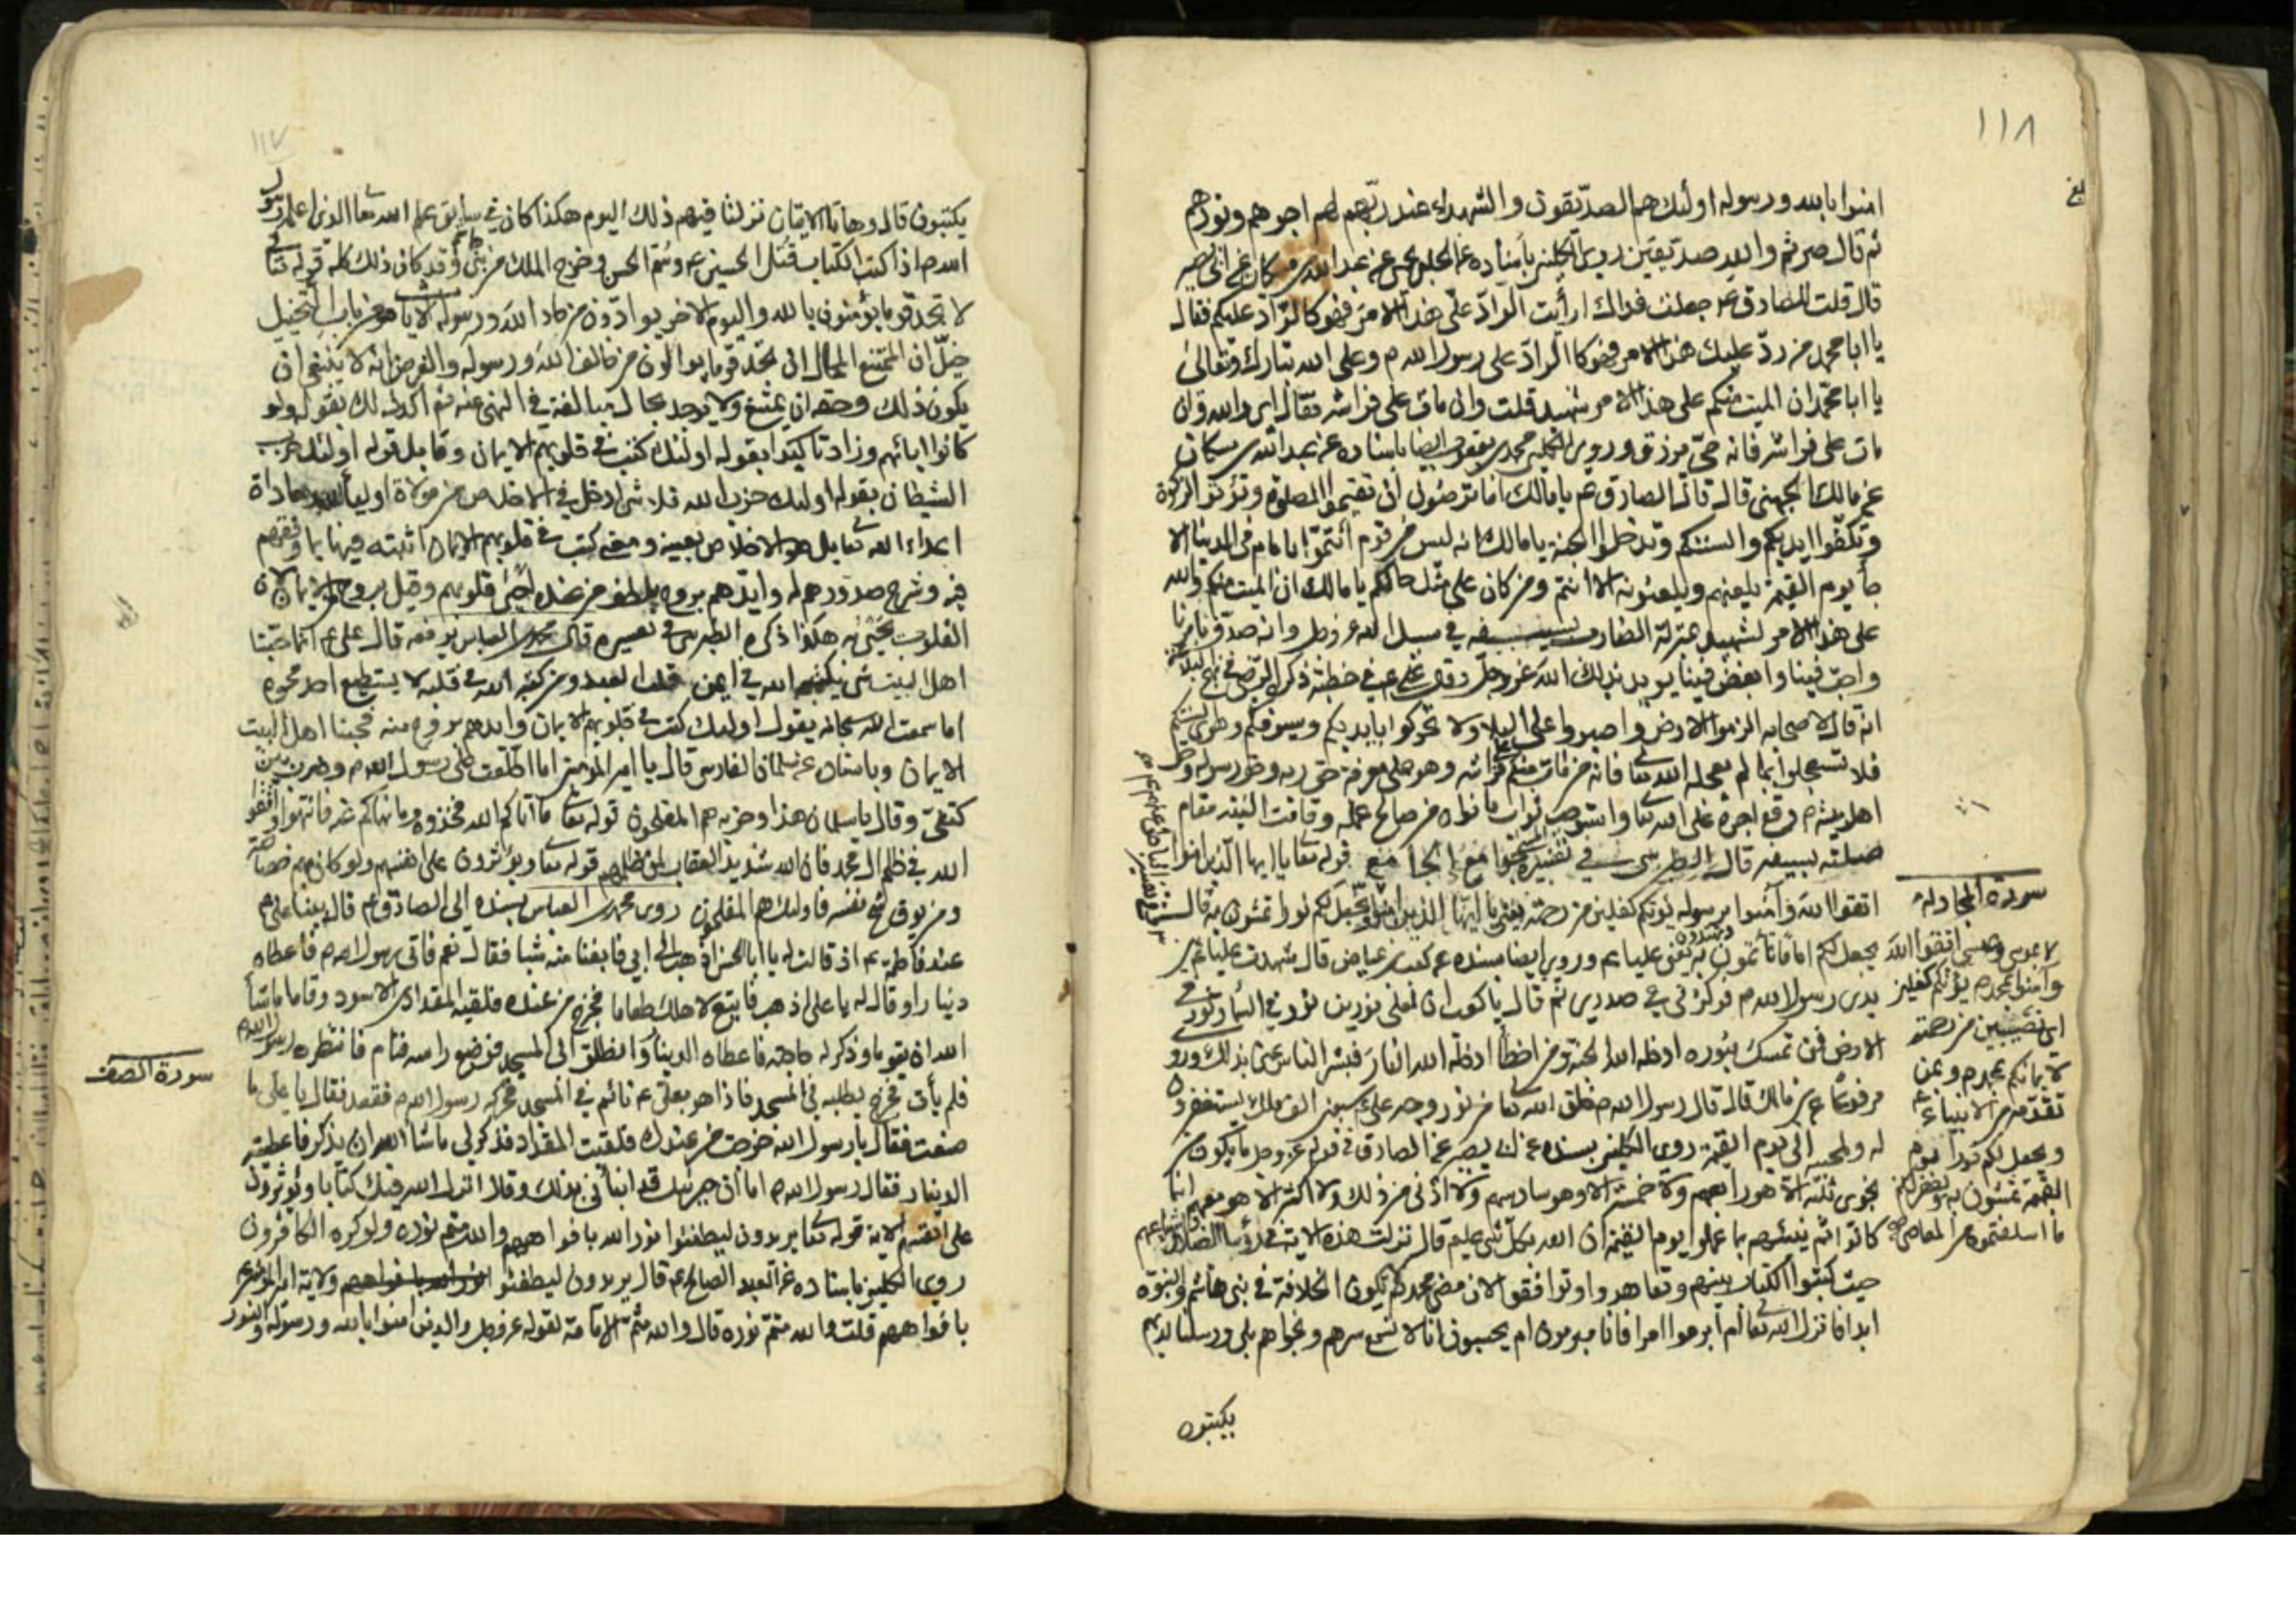 ١١٨
امنوا بالله ورسوله اولئك هم الصديقون والشهداء عند ربهم لهم اجرهم ونورهم
ثم قال صرتم والله صديقين روى الكليني باسناده عبد الله بن مسكان عن ابي بصير
قال قلت للصادق جعلت فداك ارأيت الرادّ علىّ هذا الامر فهو كالرادّ عليكم فقال
يا ابا محمد من ردّ عليك هذا الامر فهو كالرادّ على رسول الله ص وعلى الله تبارك وتعالى
يا ابا محمد ان الميت منكم على هذا الامر شهيد قلت وان مات على فراشه فقال اى والله وان
مات على فراشه فانه حىّ يرزق وروى محمد بن يعقوب ايضا باسناده عن عبد الله بن مسكان
عن مالك الجهني قال قال الصادق ع يا مالك اما ترضون ان تقيموا الصلوة وتؤتوا الزكوة
وتكفوا ايديكم والسنتكم وتدخلوا الجنة يا مالك انه ليس من قوم ائتمّوا بامام فى الدنيا الا
جاء يوم القيمة يلعنهم ويلعنونه الا انتم ومن كان على مثل حالكم يا مالك ان الميت منكم والله
على هذا الامر لشهيد بمنزلة الضارب بسيفه فى سبيل الله عز وجل
انه قال لاصحابه الزموا الارض واصبروا على البلاء ولا تحركوا بايديكم وسيوفكم
فلا تستعجلوا بما لم يعجله الله فانه من مات منكم على فراشه وهو على معرفة حق ربه وحق رسوله و
اهل بيته وقع اجره على الله واستوجب ثواب ما نواه من صالح عمله وقامت النية مقام
صلته بسيفه قال الطبرسى فى تفسيره قوله تعالى يا ايها الذين امنوا
اتقوا الله وآمنوا برسوله يؤتكم كفلين من رحمته يعنى يا ايها الذين امنوا ويجعل لكم نورا تمشون به قال
يجعل لكم اماما تأتمون به يعنى عليا ع وروى ايضا بسنده عن كعب بن عياض قال
يدى رسول الله ص فوكزنى فى صدرى ثم قال يا كعب ان لعلى نورين نور فى السماء ونور فى
الارض فمن تمسك بنوره ادخله الله الجنة ومن اخطأه ادخله الله النار فبشر الناس عنى بذلك وروى
مالك قال قال رسول الله ص خلق الله من نور وجه على سبعين الف ملك يستغفرون
له ولمحبيه الى يوم القيمة روى الكليني بسنده عن ابى بصير عن الصادق فى قوله عز وجل ما يكون من
نجوى ثلثة الا هو رابعهم ولا خمسة الا وهو سادسهم ولا ادنى من ذلك ولا اكثر الا هو معهم اينما
كانوا ثم ينبئهم بما عملوا يوم القيمة ان الله بكل شىء عليم قال نزلت هذه الاية فى
حيث كتبوا الكتاب بينهم وتعاهدوا وتوافقوا لان مضى محمد لا تكون الخلافة فى بنى هاشم والنبوة
ابدا فانزل الله ام ابرموا امرا فانا مبرمون ام يحسبون انا لا نسمع سرهم ونجواهم بلى ورسلنا لديهم
يكتبون
سورة المجادلة
اتقوا الله
وآمنوا بمحمد ص يؤتكم كفلين
اى نصيبين من رحمته
لايمانكم بمحمد ص وبمن
تقدّمه من الانبياء
ويجعل لكم نورا يوم
القيمة تمشون به ويغفر لكم
ما اسلفتموه من المعاصى
١١٧
يكتبون قال وهاتان الايتان نزلتا فيهم ذلك اليوم هكذا كان فى سابق علم الله الذى اعلمه رسول
الله ص اذا كتب الكتاب قتل الحسين ع وخرج الملك من بنى هاشم وقد كان ذلك كله قوله
لا تجد قوما يؤمنون بالله واليوم الاخر يوادّون من حاد الله ورسوله الاية من باب التخييل
خيّل ان الممتنع المحال ان تجد قوما يوالون من خالف الله ورسوله والغرض انه لا ينبغى ان
يكون ذلك وحقه ان يمتنع ولا يوجد بحال مبالغة فى النهى عنه ثم اكد ذلك بقوله ولو
كانوا ابائهم وزاد تاكيدا بقوله اولئك كتب فى قلوبهم الايمان وقابل قوله اولئك حزب
الشيطان بقوله اولئك حزب الله فلا شىء ادخل فى الاخلاص من موالاة اولياء الله ومعاداة
اعداء الله بل هو الاخلاص بعينه ومعنى كتب فى قلوبهم الايمان اثبته فيها بما وفقهم
فيه وشرح صدورهم له وايدهم بروح بلطف من عنده قلوبهم وقيل بروح من الايمان لان
القلوب تحيى به هكذا ذكره الطبرسى فى تفسيره محمد بن العباس يرفعه قال على ع انما حبنا
اهل البيت شىء يكتبه الله فى ايمن قلب العبد ومن كتبه الله فى قلبه لا يستطيع احد محوه
اما سمعت الله سبحانه يقول اولئك كتب فى قلوبهم الايمان وايدهم بروح منه فحبنا اهل البيت
الايمان وباسناده عن سلمان الفارسى قال يا امير المؤمنين ما اطلعت على رسول الله ص وضرب بين
كتفىّ وقال يا سلمان هذا وحزبه هم المفلحون قوله ما آتاكم الله فخذوه وما نهاكم عنه فانتهوا واتقوا
الله فى ظلم ال محمد فان الله شديد العقاب لمن ظلمهم قوله ويؤثرون على انفسهم ولو كان بهم خصاصة
ومن يوق شح نفسه فاولئك هم المفلحون روى محمد بن العباس بسنده الى الصادق ع قال بينا على ع
عند فاطمة ع اذ قالت له يا ابا الحسن اذهب الى ابى فابغنا منه شيئا فقال نعم فاتى رسول الله ص فاعطاه
دينارا وقال له يا على اذهب فابتع لاهلك طعاما فخرج من عنده فلقيه المقداد بن الاسود وقاما ما شاء
الله ان يقوما وذكر له حاجته فاعطاه الدينار وانطلق الى المسجد فوضع راسه فنام فانتظره رسول الله ص
فلم يأت فخرج يطلبه فى المسجد فاذا هو بعلى ع نائم فى المسجد فحركه رسول الله ص فقعد فقال يا على ما
صنعت فقال يا رسول الله خرجت من عندك فلقيت المقداد فذكر لى ما شاء الله ان يذكر فاعطيته
الدينار فقال رسول الله ص اما ان جبرئيل قد انبأنى بذلك وقد انزل الله فيك كتابا ويؤثرون
على انفسهم الاية قوله يريدون ليطفئوا نور الله بافواههم والله متم نوره ولو كره الكافرون
روى الكليني باسناده عن العبد الصالح ع قال يريدون ليطفئوا ولاية امير المؤمنين ع
بافواههم قلت والله متمّ نوره قال والله متمّ الامامة لقوله عز وجل والذين امنوا بالله ورسوله والنور
سورة الصف